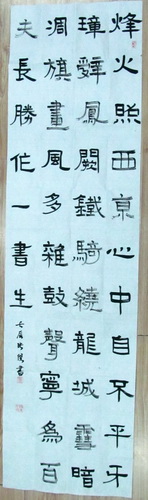 烽火照西京心中自不平牙
璋辤鳳闕鐵騎繞龍城雪暗
凋旗畫風多雜鼓聲寧為百
夫長勝作一書生